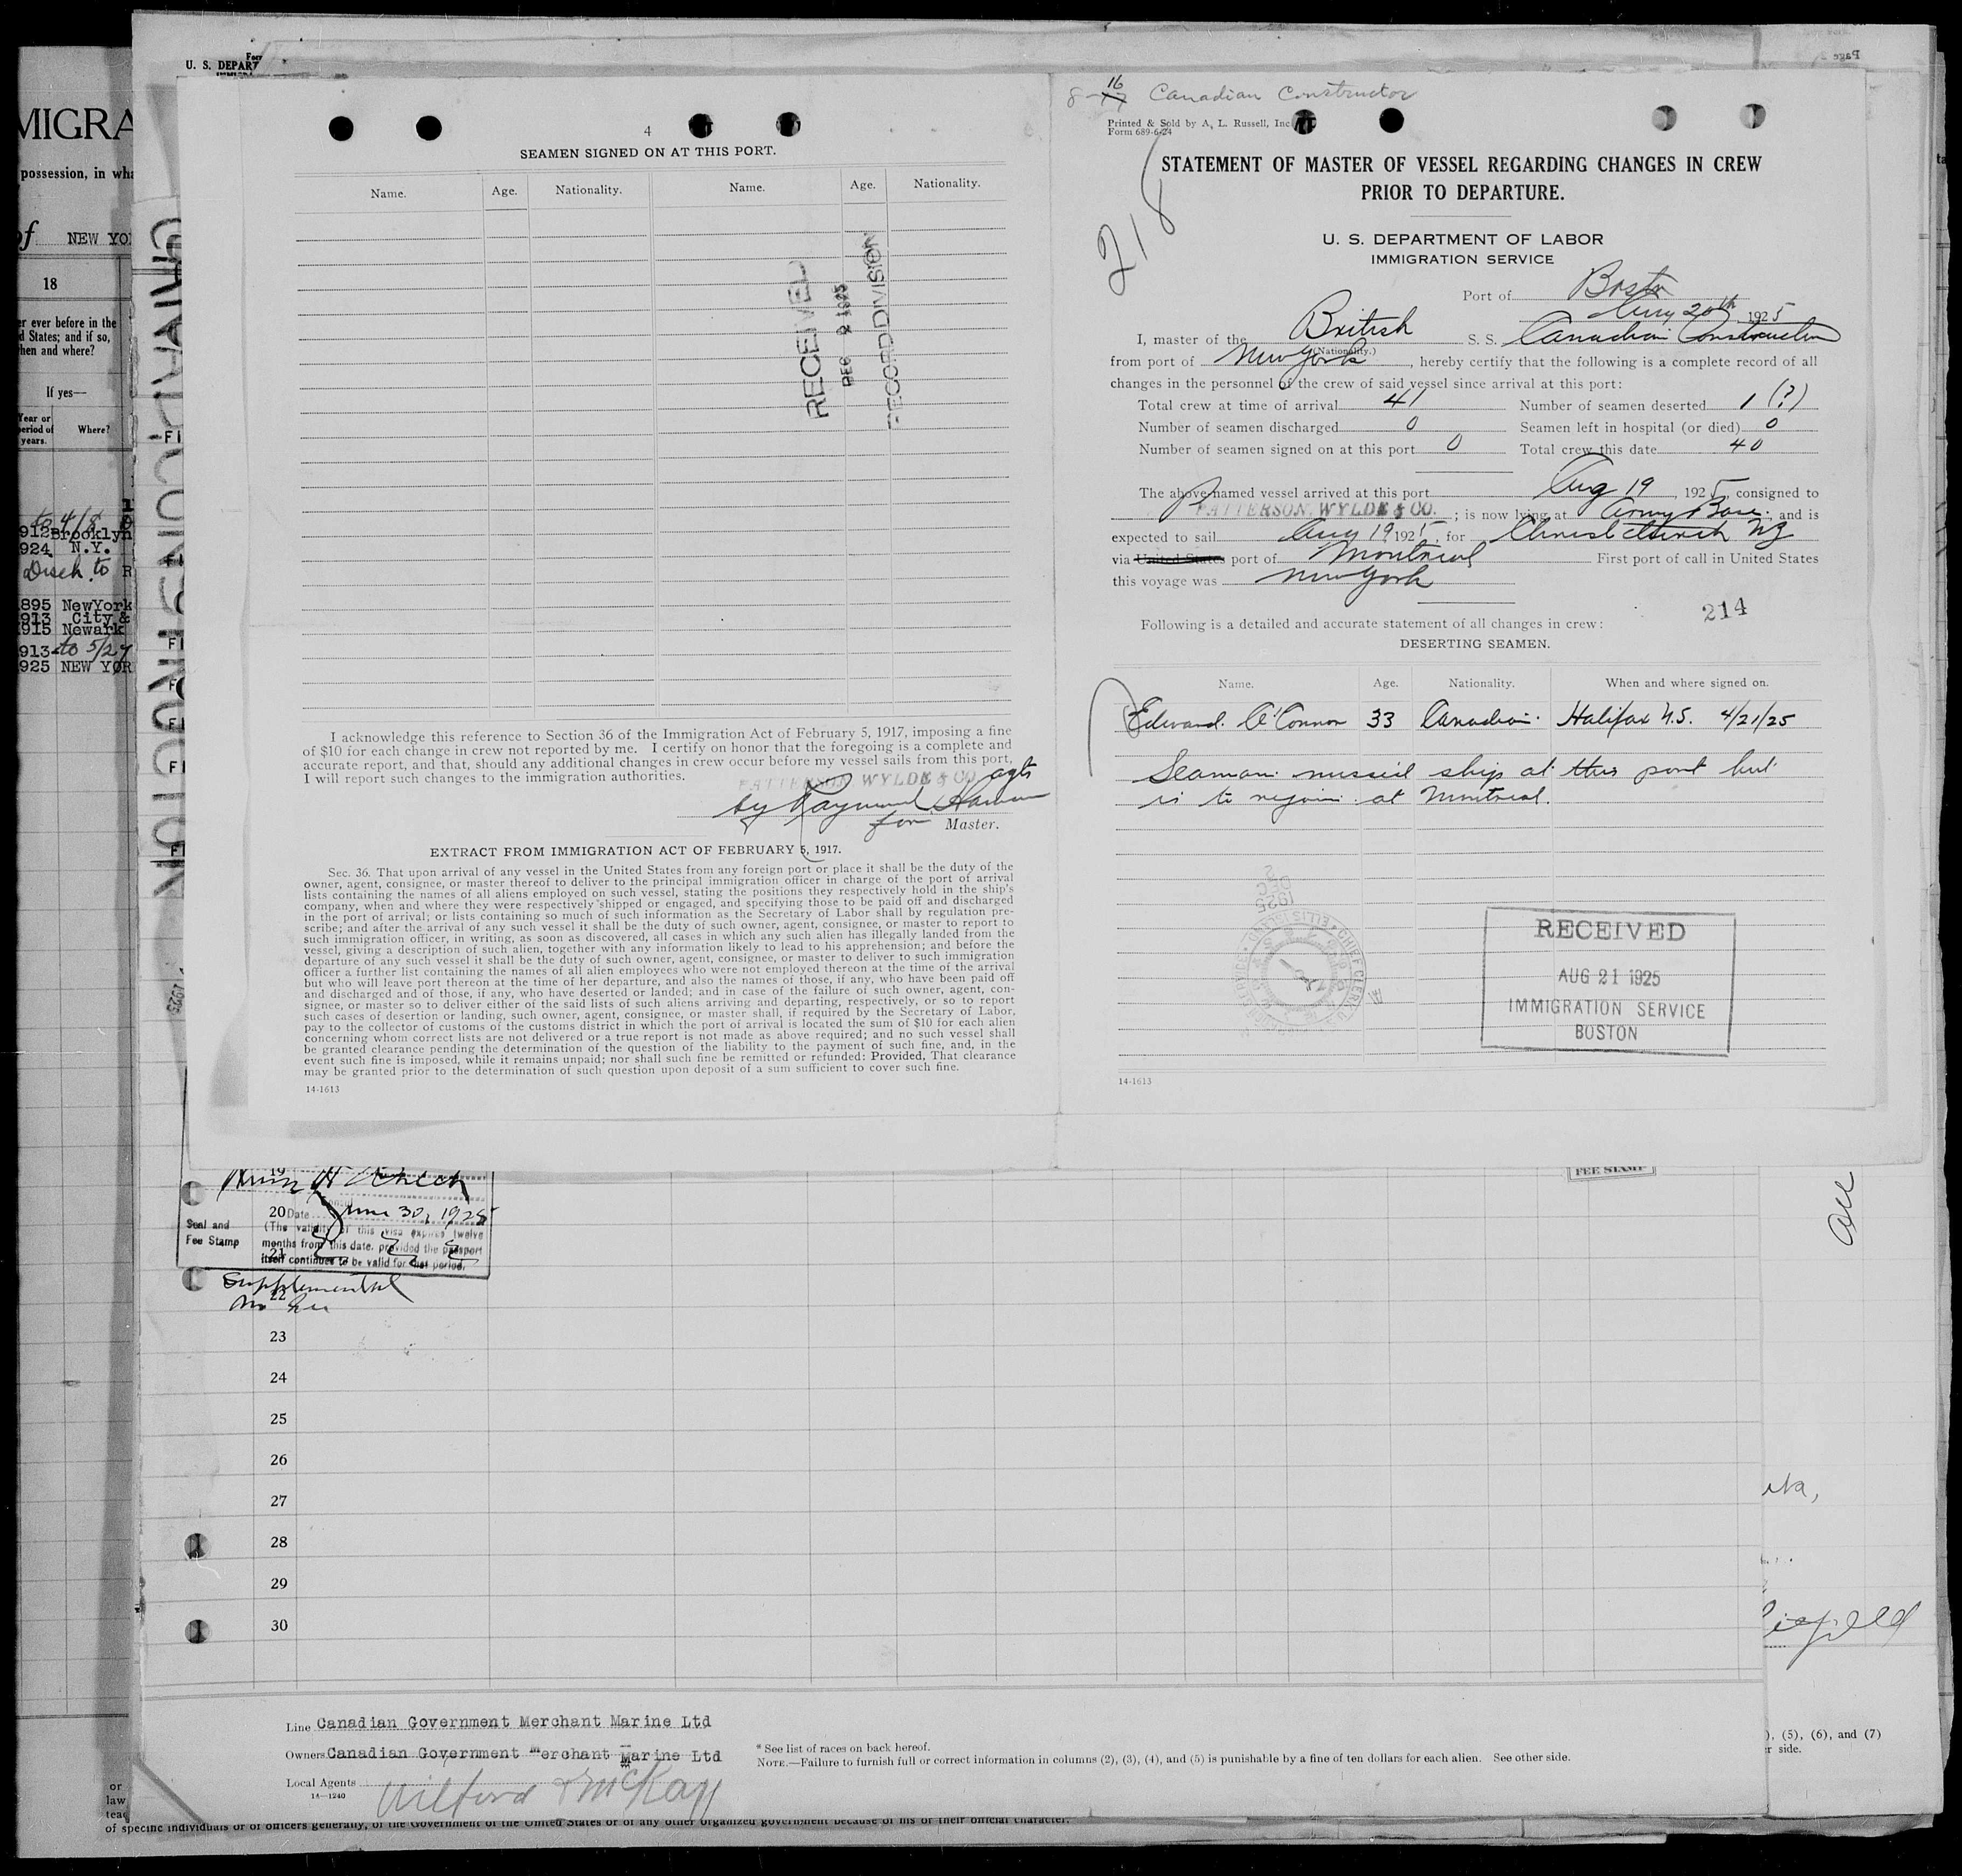 U. S. DEPAR
MIGRA
possession, in wh
of NEW YO
18
er ever before in the
d States; and if so,
hen and where?
If yes—
Year or
period of
years.
Where?
to 4/8
912 Brooklyn
924 N.Y.
Disch. to R
895 NewYork
913 City &
915 Newark
913 to 5/27
925 NEW YOR
4
SEAMEN SIGNED ON AT THIS PORT.
Name. Age. Nationality. Name. Age. Nationality.
RECEIVED
DEC 2 1925
RECORD DIVISION
I acknowledge this reference to Section 36 of the Immigration Act of February 5, 1917, imposing a fine
of $10 for each change in crew not reported by me. I certify on honor that the foregoing is a complete and
accurate report, and that, should any additional changes in crew occur before my vessel sails from this port,
I will report such changes to the immigration authorities.
PATTERSON, WYLDE & CO. agts
by Raymond
for Master.
EXTRACT FROM IMMIGRATION ACT OF FEBRUARY 5, 1917.
Sec. 36. That upon arrival of any vessel in the United States from any foreign port or place it shall be the duty of the
owner, agent, consignee, or master thereof to deliver to the principal immigration officer in charge of the port of arrival
lists containing the names of all aliens employed on such vessel, stating the positions they respectively hold in the ship's
company, when and where they were respectively shipped or engaged, and specifying those to be paid off and discharged
in the port of arrival; or lists containing so much of such information as the Secretary of Labor shall by regulation pre-
scribe; and after the arrival of any such vessel it shall be the duty of such owner, agent, consignee, or master to report to
such immigration officer, in writing, as soon as discovered, all cases in which any such alien has illegally landed from the
vessel, giving a description of such alien, together with any information likely to lead to his apprehension; and before the
departure of any such vessel it shall be the duty of such owner, agent, consignee, or master to deliver to such immigration
officer a further list containing the names of all alien employees who were not employed thereon at the time of the arrival
but who will leave port thereon at the time of her departure, and also the names of those, if any, who have been paid off
and discharged and of those, if any, who have deserted or landed; and in case of the failure of such owner, agent, con-
signee, or master so to deliver either of the said lists of such aliens arriving and departing, respectively, or so to report
such cases of desertion or landing, such owner, agent, consignee, or master shall, if required by the Secretary of Labor,
pay to the collector of customs of the customs district in which the port of arrival is located the sum of $10 for each alien
concerning whom correct lists are not delivered or a true report is not made as above required; and no such vessel shall
be granted clearance pending the determination of the question of the liability to the payment of such fine, and, in the
event such fine is imposed, while it remains unpaid; nor shall such fine be remitted or refunded: Provided, That clearance
may be granted prior to the determination of such question upon deposit of a sum sufficient to cover such fine.
14-1613
8-16 Canadian Constructor
Printed & Sold by A. L. Russell, Inc
Form 689-6-24
218
STATEMENT OF MASTER OF VESSEL REGARDING CHANGES IN CREW
PRIOR TO DEPARTURE.
U. S. DEPARTMENT OF LABOR
IMMIGRATION SERVICE
Port of Boston
Aug 20th, 1925
I, master of the British S. S. Canadian Constructor
(Nationality.)
from port of New York, hereby certify that the following is a complete record of all
changes in the personnel of the crew of said vessel since arrival at this port:
Total crew at time of arrival 41 Number of seamen deserted 1 (?)
Number of seamen discharged 0 Seamen left in hospital (or died) 0
Number of seamen signed on at this port 0 Total crew this date 40
The above-named vessel arrived at this port Aug 19, 1925, consigned to
PATTERSON, WYLDE & CO.; is now lying at Army Base, and is
expected to sail Aug 19, 1925, for Christchurch NZ
via United States port of Montreal First port of call in United States
this voyage was New York
214
Following is a detailed and accurate statement of all changes in crew:
DESERTING SEAMEN.
Name. Age. Nationality. When and where signed on.
Edward O'Connor 33 Canadian. Halifax N.S. 4/21/25
Seaman missed ship at this port but
is to rejoin at Montreal.
RECEIVED
AUG 21 1925
IMMIGRATION SERVICE
BOSTON
14-1613
FEE STAMP
19
20 Date June 30, 1925
Seal and
Fee Stamp
(The validity of this visa expires twelve
months from this date, provided the passport
itself continues to be valid for that period.
21
Supplemental
22
No fee
23
24
25
26
27
28
29
30
Line Canadian Government Merchant Marine Ltd
Owners Canadian Government Merchant Marine Ltd
Local Agents Wilford & McKay
14-1240
* See list of races on back hereof.
NOTE.—Failure to furnish full or correct information in columns (2), (3), (4), and (5) is punishable by a fine of ten dollars for each alien. See other side.
), (5), (6), and (7)
r side.
of specific individuals or of officers generally, of the Government of the United States or of any other organized government because of his or their official character.